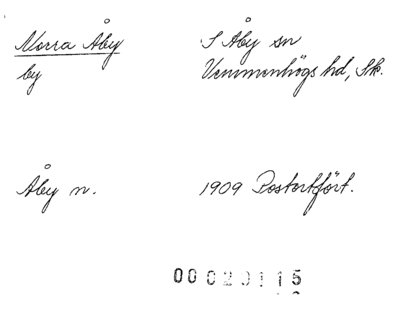 Norra Åby
S Åby sn
by
Vemmenhögs hd, Sk.
Åby n.
1909 Postortfört.